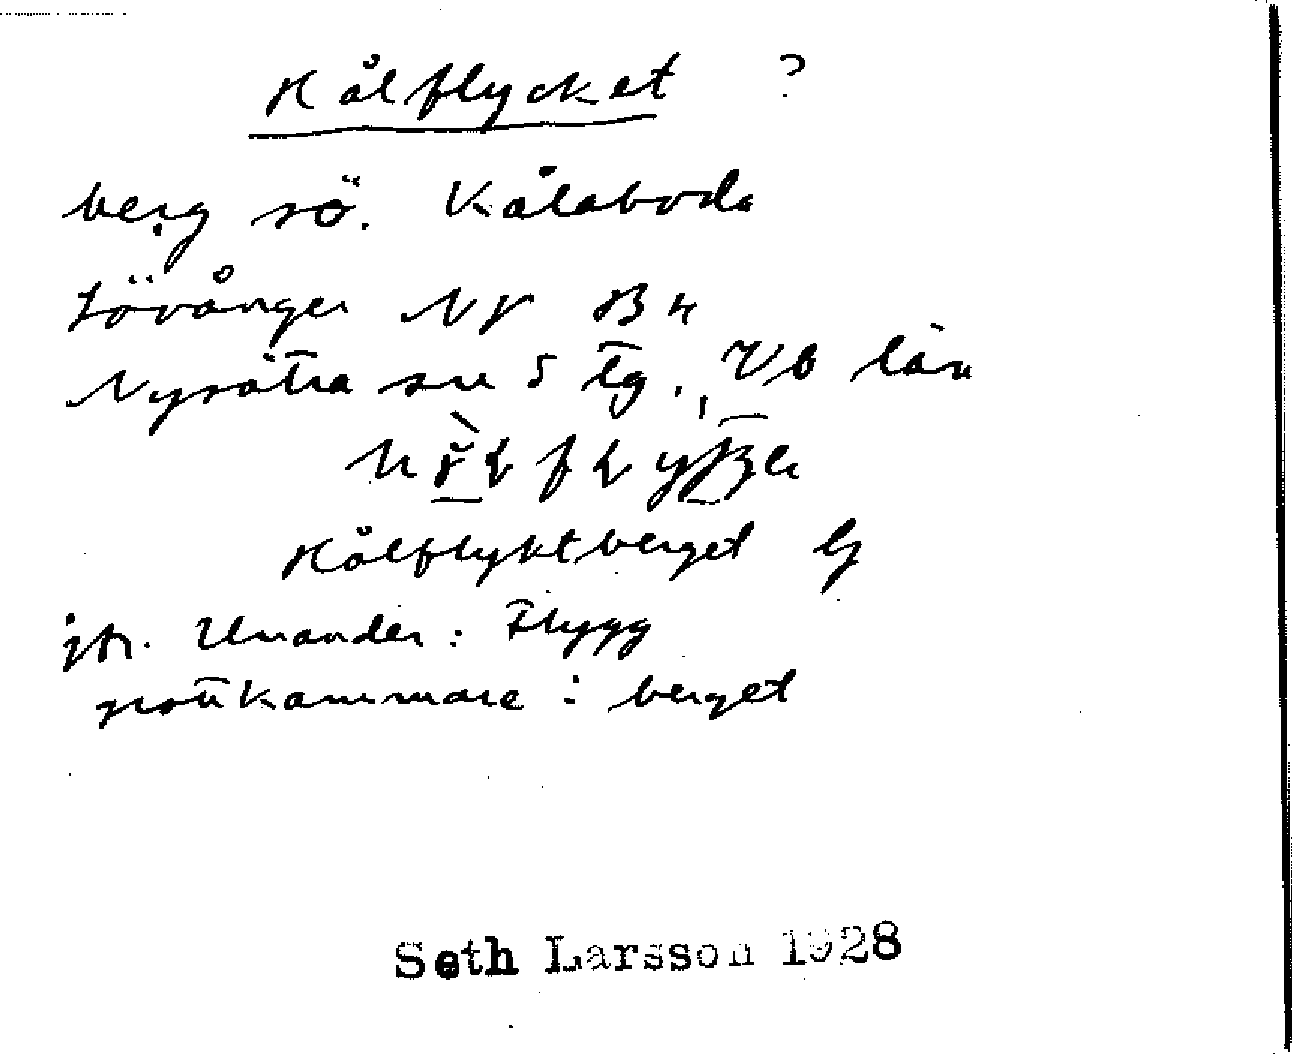 Kålflycket ?
berg sö. Kålaboda
Lövånger NV B4
Nysätra sn 5 tg., Vb län
Kålflyktberget G
jfr. Unander: Flygg
grottkammare i berget
Seth Larsson 1928